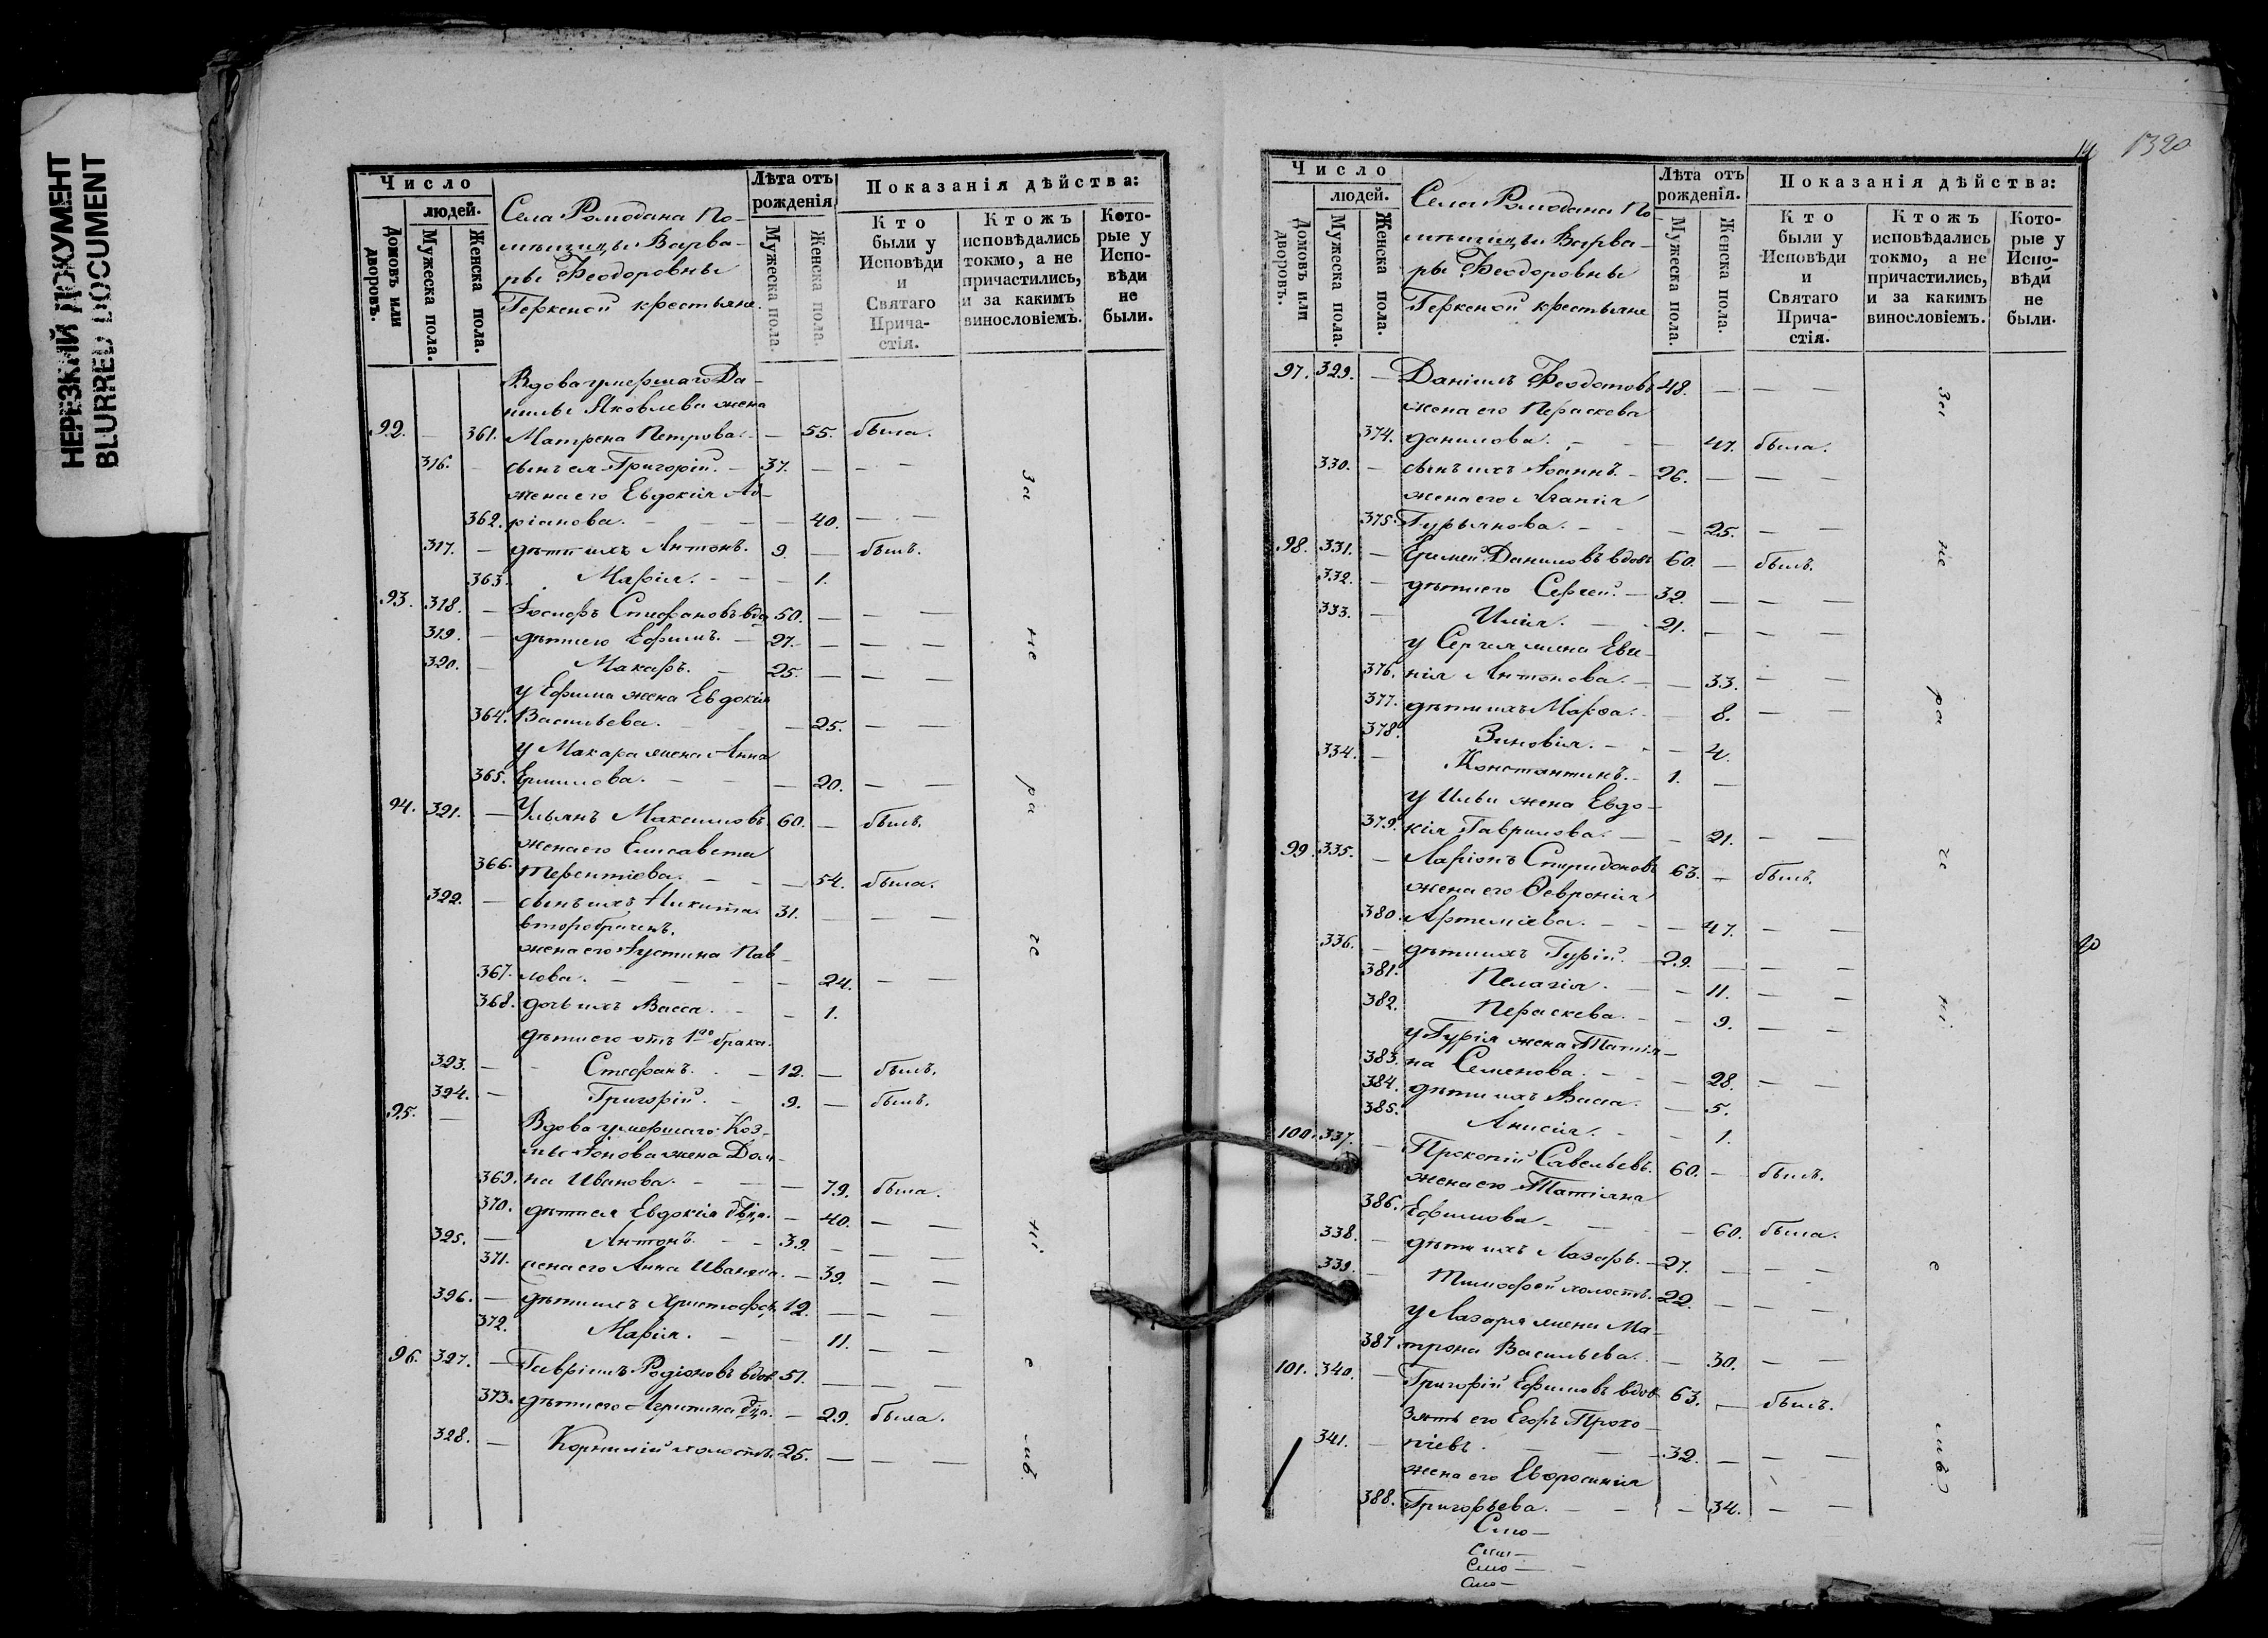 НЕРЕЗКИЙ ДОКУМЕНТ
BLURRED DOCUMENT
Число
людей.
Домовъ или дворовъ.
Мужеска пола.
Женска пола.
Села Ромодана По-
мѣщицы Варва-
ры Феодоровны
крестьяне.
Лѣта отъ рожденія
Мужеска пола.
Женска пола.
Показанія дѣйства:
Кто были у Исповѣди и Святаго Прича-стія.
Ктожъ исповѣдались токмо, а не причастились, и за какимъ винословіемъ.
Кото-рые у Испо-вѣди не были.
Вдова умершаго Да-
нилы Яковлева жена
92. — 361. Матрена Петрова. — 55. была.
316. — сынъ ея Григорій. — 37. — — —
жена его Евдокія Ад-
362. ріанова. — — — — 40. — —
317. — дѣти ихъ Антонъ. 9 — былъ.
363. Марія. — — — 1.
93. 318. — Іосифъ Стефановъ вдо 50. — — —
319. — дѣти его Ефимъ. — 27. — — —
320. — Макаръ. — 25. — — —
у Ефима жена Евдокія
364. Васильева. — — — 25. — —
у Макара жена Анна
365. Ермилова. — — — 20. — —
94. 321. — Ульянъ Максимовъ. 60. — былъ.
жена его Елисавета
366. Терентіева. — — — 54. была.
322. — сынъ ихъ Никита 31. — — —
второбраченъ.
жена его Іустина Пав-
367. лова. — — — — 24. — —
368. дочь ихъ Васса. — — 1.
дѣти его отъ 1го брака.
323. — — Стефанъ. — 12. — былъ.
324. — Григорій. — 9. — былъ.
95. — Вдова умершаго Коз-
мы Іонова жена Дом-
369. на Иванова. — — — 79. была.
370. дѣти ея Евдокія дѣца. — 40. — —
325. — Антонъ. — — 39. — — —
371. жена его Анна Иванова. — 39. — —
326. — дѣти ихъ Христофоръ. 12. — —
372. Марія. — — 11. — —
96. 327. — Гавріилъ Родіоновъ вдов 51. — — —
373. дѣти его Агрипина дца. — 29. была.
328. — Корнилій холостъ. 25. — — —
За
не
ра
че
ні
е
мъ.
14 1320
Число
людей.
Домовъ или дворовъ.
Мужеска пола.
Женска пола.
Села Ромодана По
мѣщицы Варва-
ры Феодоровны
крестьяне
Лѣта отъ рожденія.
Мужеска пола.
Женска пола.
Показанія дѣйства:
Кто были у Исповѣди и Святаго Прича-стія.
Ктожъ исповѣдались токмо, а не причастились, и за какимъ винословіемъ.
Кото-рые у Испо-вѣди не были.
97. 329. — Даніилъ Феодотовъ 48. — — —
жена его Параскева
374. Данилова. — — — 47. была.
330. — сынъ ихъ Іоаннъ. — 26. — — —
жена его Агапія
375. Гурьянова. — — — 25. — —
98. 331. — Еремей Даниловъ вдовъ 60. — былъ.
332. — дѣти его Сергей. — 32. — — —
333. — Илія. — 21. — — —
у Сергія жена Евге-
376. нія Антонова. — — 33. — —
377. дѣти ихъ Марѳа. — 8. — —
378. Зиновія. — — — 4.
334. — Константинъ. — 1. —
у Ильи жена Евдо-
379. кія Гаврилова. — — 21. — —
99. 335. — Ларіонъ Спиридоновъ 63. — былъ.
жена его Ѳевронія
380. Артеміева. — — — 47. — —
336. — дѣти ихъ Гурій. — 29. — — —
381. Пелагія. — — 11. — —
382. Параскева. — — 9. — —
у Гурія жена Татія-
383. на Семенова. — — — 28. — —
384. дѣти ихъ Васса. — 5.
385. Анисія. — — 1.
100. 337. — Прокопій Савельевъ. 60. — былъ.
жена его Татіяна
386. Ефимова — — — 60. была.
338. — дѣти ихъ Лазарь. — 27. — — —
339. — Тимофей холостъ. 22. — — —
у Лазаря жена Ма-
387. трона Васильева. — 30. — —
101. 340. — Григорій Ефимовъ вдов 63. — былъ.
Зять его Егоръ Проко-
341. — піевъ. — — 32. — — —
жена его Евфросинія
388. Григорьева. — — — 34. — —
За
не
ра
че
ні
е
мъ